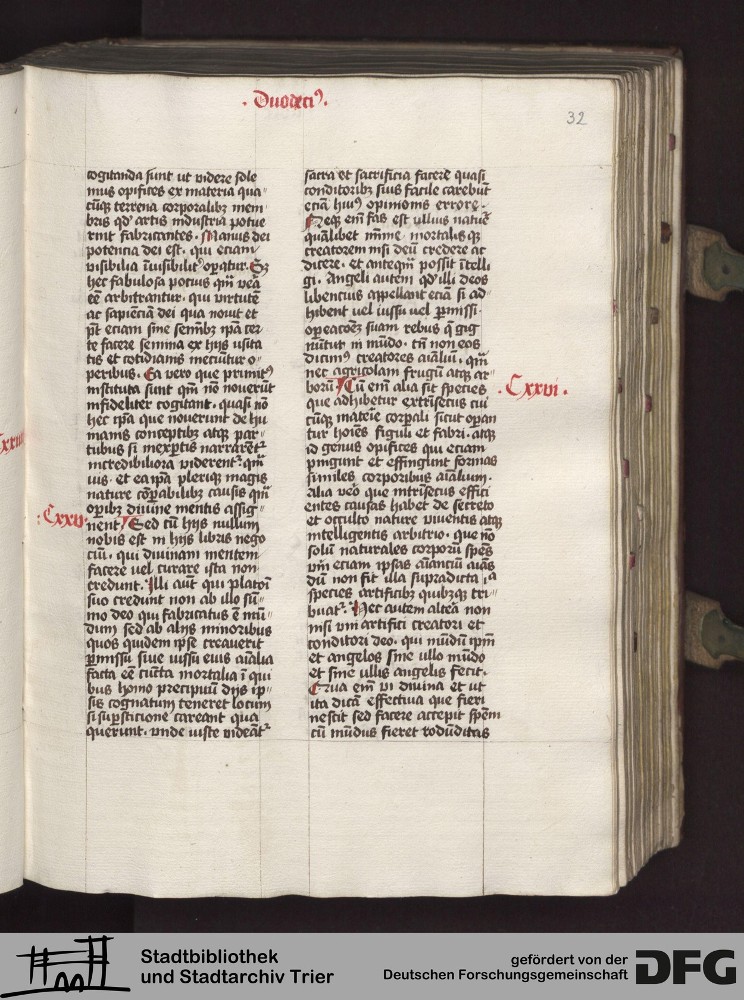 · Duodeciꝰ ·
32
cogitanda sunt ut videre sole
mus opifices ex materia qua
cūqꝫ terrena corporalibꝫ mem
bris qd' artis industria potue
rint fabricantes. Manus dei
potencia dei est. qui eciam
visibilia īuisibilitꝰ oꝑatur. Sꝫ
hec fabulosa pocius qm̄ vēa
eē arbitrantur. qui virtutē
ac sapienciā dei qua nouit et
pt̄ eciam sine semībꝫ ipā cer
te facere semina ex hijs usita
tis et cotidianis meciūtur o
peribus. Ea vero que primitꝰ
instituta sunt qm̄ nō nouerūt
infideliter cogitant. quasi nō
hec ipa que nouerunt de hu
manis conceptibꝫ atqꝫ par
tubus si inexꝑtis narrarēt᷑
incredibiliora viderent᷑. qm̄
uis. et ea ipa plerique magis
nature corꝑalibꝫ causis qm̄
oꝑibꝫ diuine mentis assig
Cxxv.
nent. Sed cū hijs nullum
nobis est in hijs libris nego
ciū. qui diuinam mentem
facere vel curare ista non
credunt. Illi aūt qui platoī
suo credunt non ab illo sū
mo deo qui fabricatus ē mū
dum sed ab alijs minoribus
quos quidem ipse creauerit
ꝑmissu siue iussu eius aīalia
facta eē cūcta mortalia ī qui
bus homo precipuum dijs ip
sis cognatum teneret locum
si suꝑsticione careant qua
querunt. vnde iuste videāt᷑
sacra et sacrificia facere quasi
conditoribꝫ suis facile carebūt
eciā huiꝰ opinionis errore.
Neqꝫ em̄ fas est ullius natur̄
quālibet mīme. mortalisqꝫ
creatorem nisi deū credere ac
dicere. et anteqm̄ possit ītelli
gi. Angeli autem qd' illi deos
libencius appellant eciā si ad
hibent vel iussi vel ꝑmissi.
oꝑeacōeꝫ suam rebus q̄ gig
nūtur in mūdo. tn̄ non eos
dicimꝰ creatores aīaliū. qm̄
nec agricolam frugū atqꝫ ar
borū. Cū em̄ alia sit species
Cxxvi.
que adhibetur extrīsecus cui
cūqꝫ mateīe corꝑali sicut opan
tur hoīes figuli et fabri. atqꝫ
id genus opifices qui eciam
pingunt et effingunt formas
similes corporibus aīalium.
alia vēo que intrīsecus effici
entes causas habet de secreto
et occulto nature viuentis atqꝫ
intelligentis arbitrio. que nō
solū naturales corporū spēs
vm̄ eciam ipsas aīanciū aīas
dū non fit illa supradicta
species artificibꝫ quibꝫqꝫ tri
buat᷑. Hec autem altēa non
nisi vni artifici creatori et
conditori deo. qui mūdū ipm̄
et angelos sine ullo mūdo
et sine ullis angelis fecit.
Qua em̄ vi diuina et ut
ita dicā effectiua que fieri
nescit sed facere accepit spēm
cū mūdus fieret rodūditas
Stadtbibliothek
und Stadtarchiv Trier
gefördert von der
Deutschen Forschungsgemeinschaft
DFG